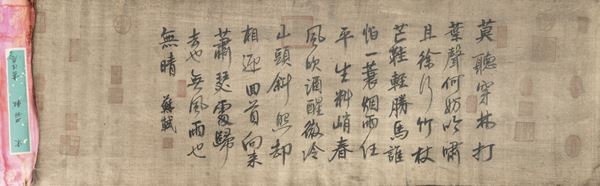 莫聽穿林打
葉聲何妨吟嘯
且徐行竹杖
芒鞋輕勝馬誰
怕一蓑烟雨任
平生料峭春
風吹酒醒微冷
山頭斜照却
相迎回首向來
蕭瑟處歸
去也無風雨也
無晴 蘇軾